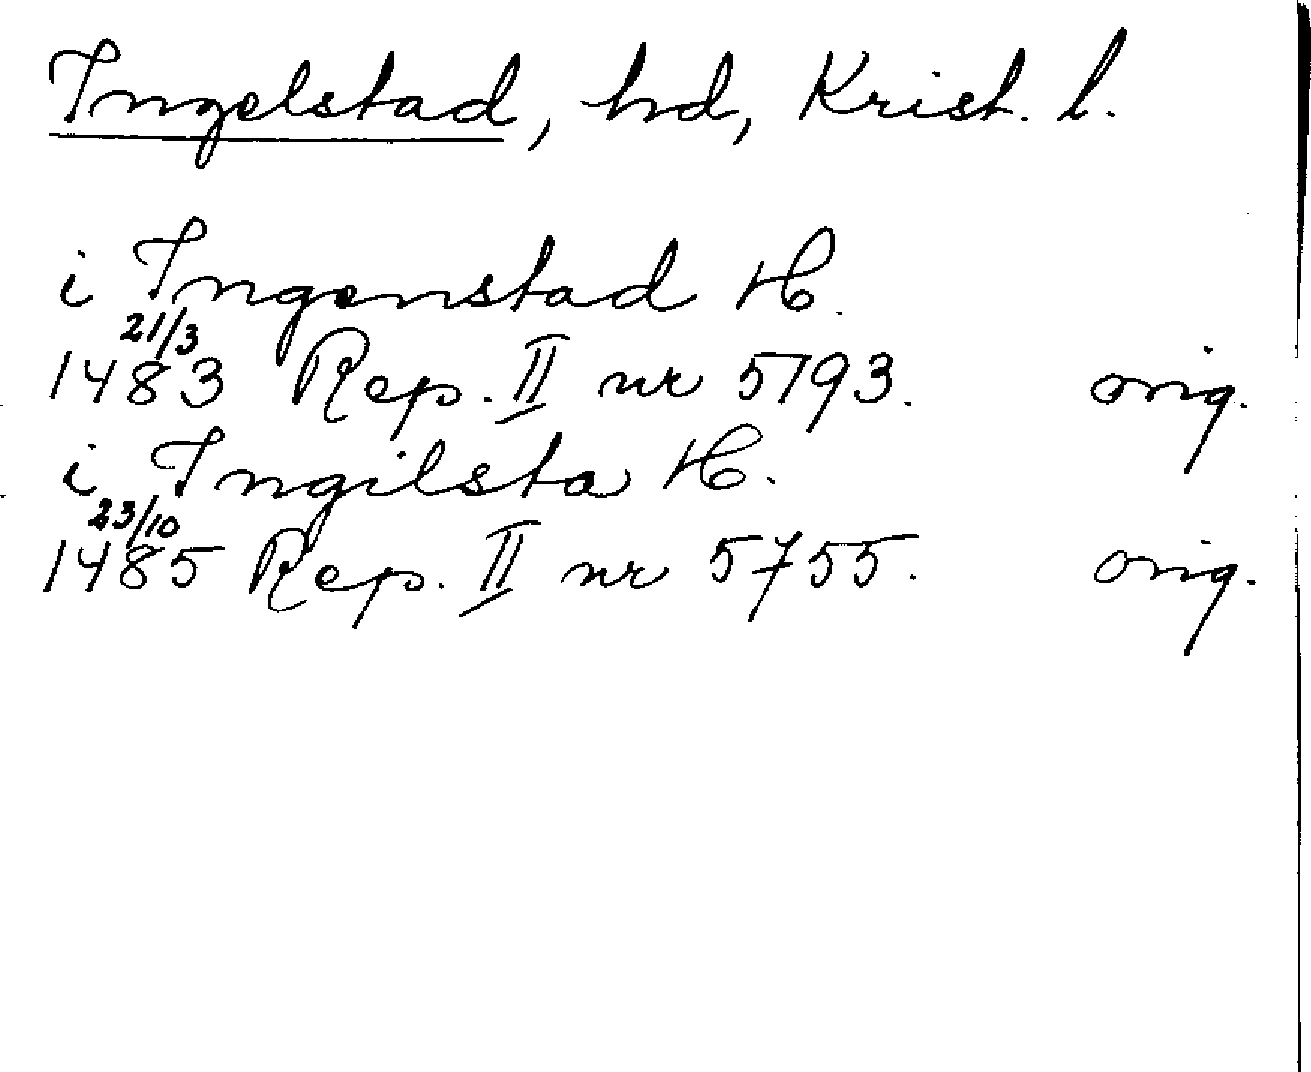 Ingelstad, hd, Krist. l.
i Ingenstad H.
21/3
1483 Rep. II nr 5193. orig.
i Ingilsta H.
23/10
1485 Rep. II nr 5755. orig.